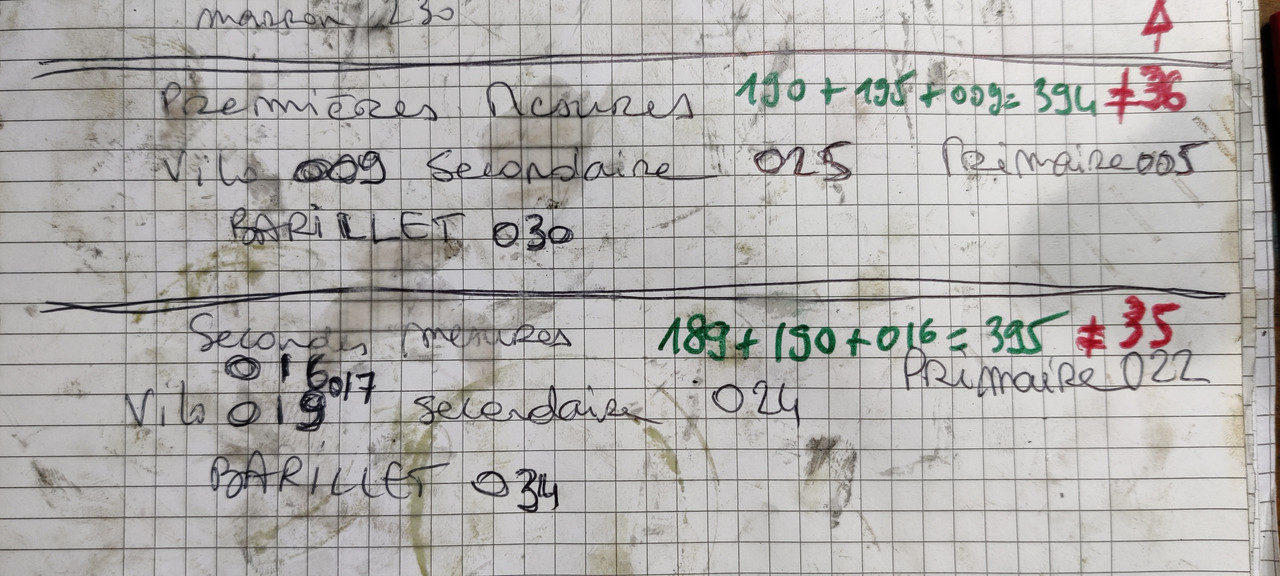 marron 230
Premières Mesures 190 + 195 + 009 = 394 ≠ 36
Vilo 009 Secondaire 025 Primaire 005
BARILLET 030
Secondes mesures 189 + 190 + 016 = 395 ≠ 35
016 017 Primaire 022
Vilo 019 secondaire 024
BARILLET 034